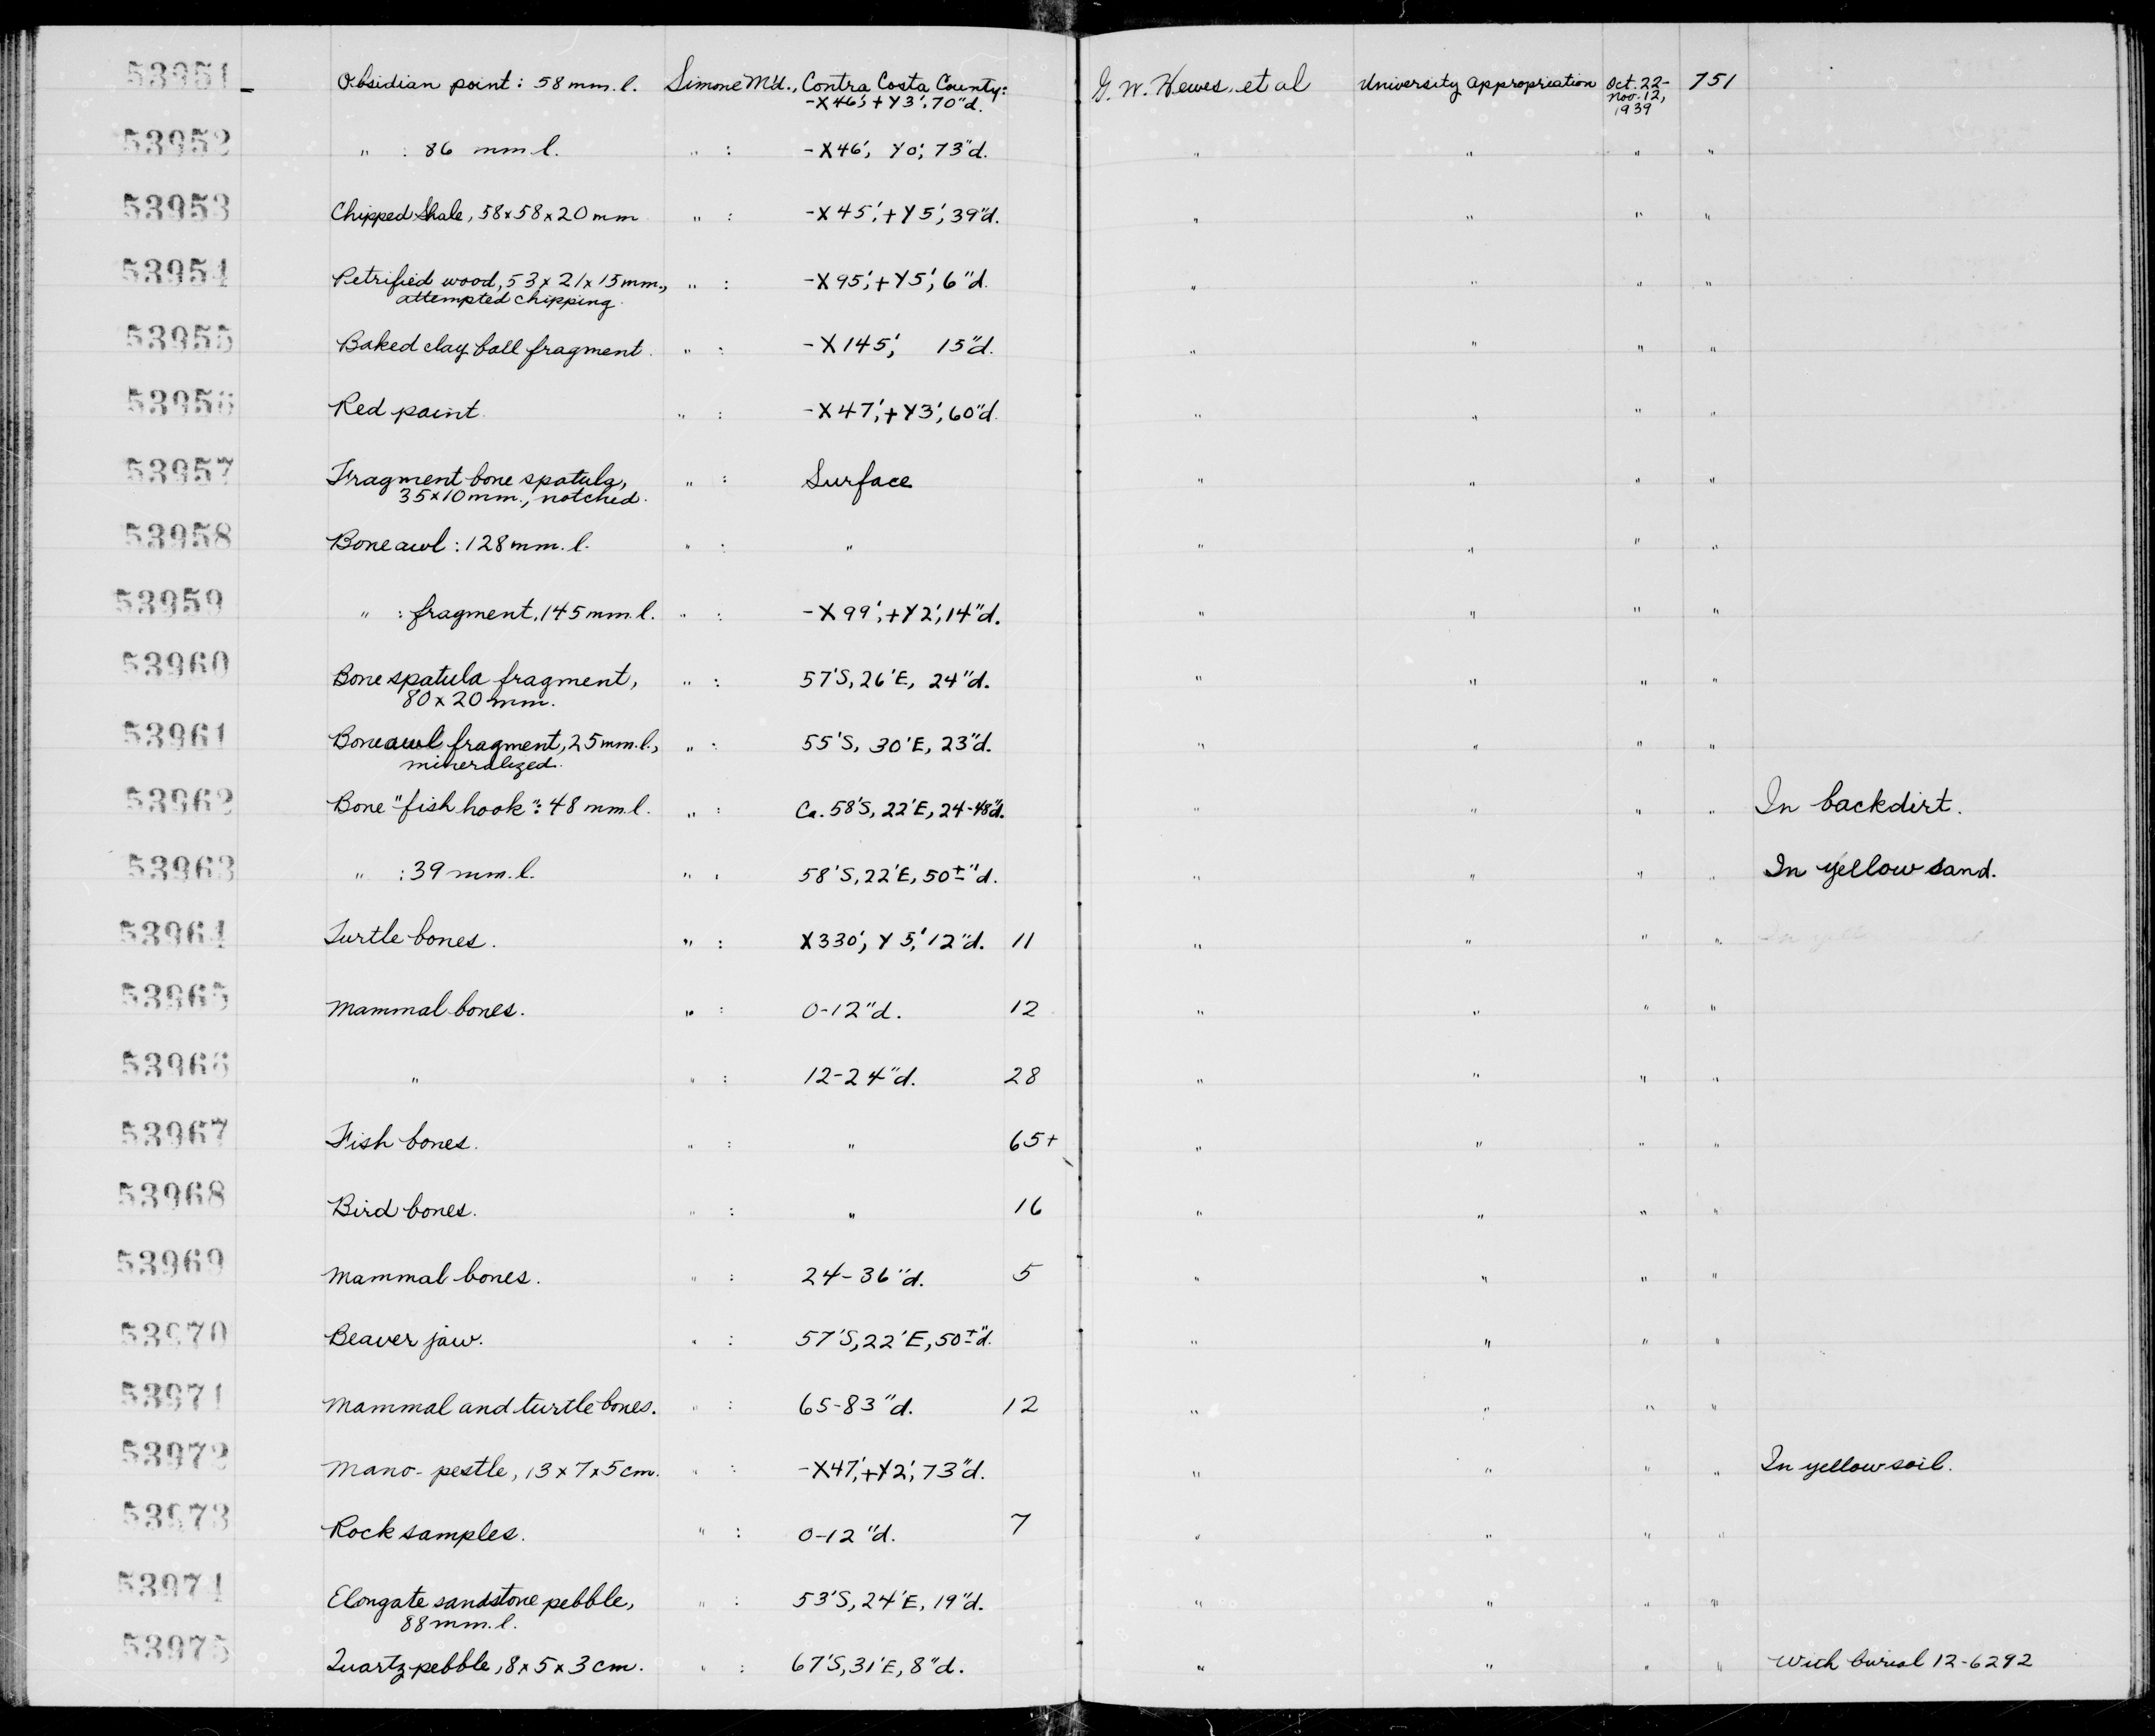 53951 Obsidian point: 58 mm. l. Simone M'd., Contra Costa County: G. W. Hewes, et al University Appropriation Oct. 22- 751
-X46', +Y3', 70"d. Nov. 12,
1939
53952 " : 86 mm l. " : -X46', Y0', 73"d. " " " "
53953 Chipped Shale, 58x58x20mm " : -X45', +Y5', 39"d. " " " "
53954 Petrified wood, 53x21x15mm., " : -X95', +Y5', 6"d. " " " "
attempted chipping.
53955 Baked clay ball fragment. " : -X145', 15"d. " " " "
53956 Red paint. " : -X47', +Y3', 60"d. " " " "
53957 Fragment bone spatula, " : Surface " " " "
35x10mm., notched.
53958 Bone awl: 128mm. l. " : " " " " "
53959 " : fragment, 145mm. l. " : -X99', +Y2', 14"d. " " " "
53960 Bone spatula fragment, " : 57'S, 26'E, 24"d. " " " "
80x20mm.
53961 Bone awl fragment, 25mm. l., " : 55'S, 30'E, 23"d. " " " "
mineralized.
53962 Bone "fish hook": 48 mm l. " : Ca. 58'S, 22'E, 24-48"d. " " " " In backdirt.
53963 " : 39 mm. l. " : 58'S, 22'E, 50±"d. " " " " In yellow sand.
53964 Turtle bones. " : X330', Y5', 12"d. 11 " " " "
53965 Mammal bones. " : 0-12"d. 12 " " " "
53966 " " : 12-24"d. 28 " " " "
53967 Fish bones. " : " 65+ " " " "
53968 Bird bones. " : " 16 " " " "
53969 Mammal bones. " : 24-36"d. 5 " " " "
53970 Beaver jaw. " : 57'S, 22'E, 50±"d. " " " "
53971 Mammal and turtle bones. " : 65-83"d. 12 " " " "
53972 Mano-pestle, 13x7x5cm. " : -X47', +Y2', 73"d. " " " " In yellow soil.
53973 Rock samples. " : 0-12"d. 7 " " " "
53974 Elongate sandstone pebble, " : 53'S, 24'E, 19"d. " " " "
88mm. l.
53975 Quartz pebble, 8x5x3cm. " : 67'S, 31'E, 8"d. " " " " With burial 12-6292